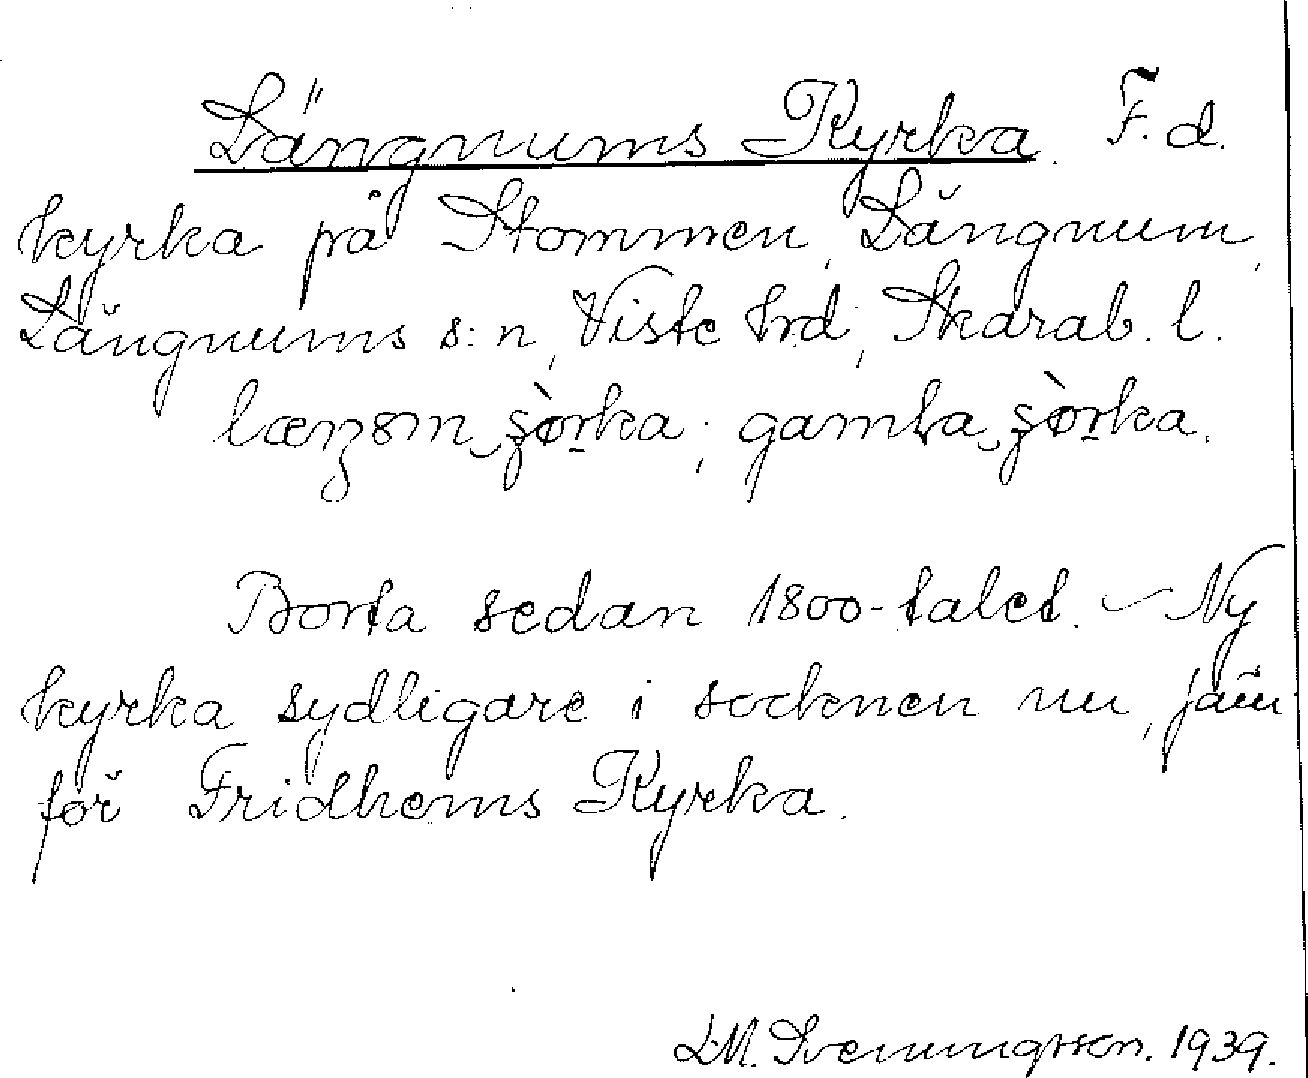 Längnums Kyrka. F. d.
kyrka på Stommen, Längnum,
Längnums s:n, Viste hrd, Skarab. l.
gamla
Borta sedan 1800-talet. – Ny
kyrka sydligare i socknen nu, jäm
för Fridhems Kyrka.
L.M. Svenungsson. 1939.